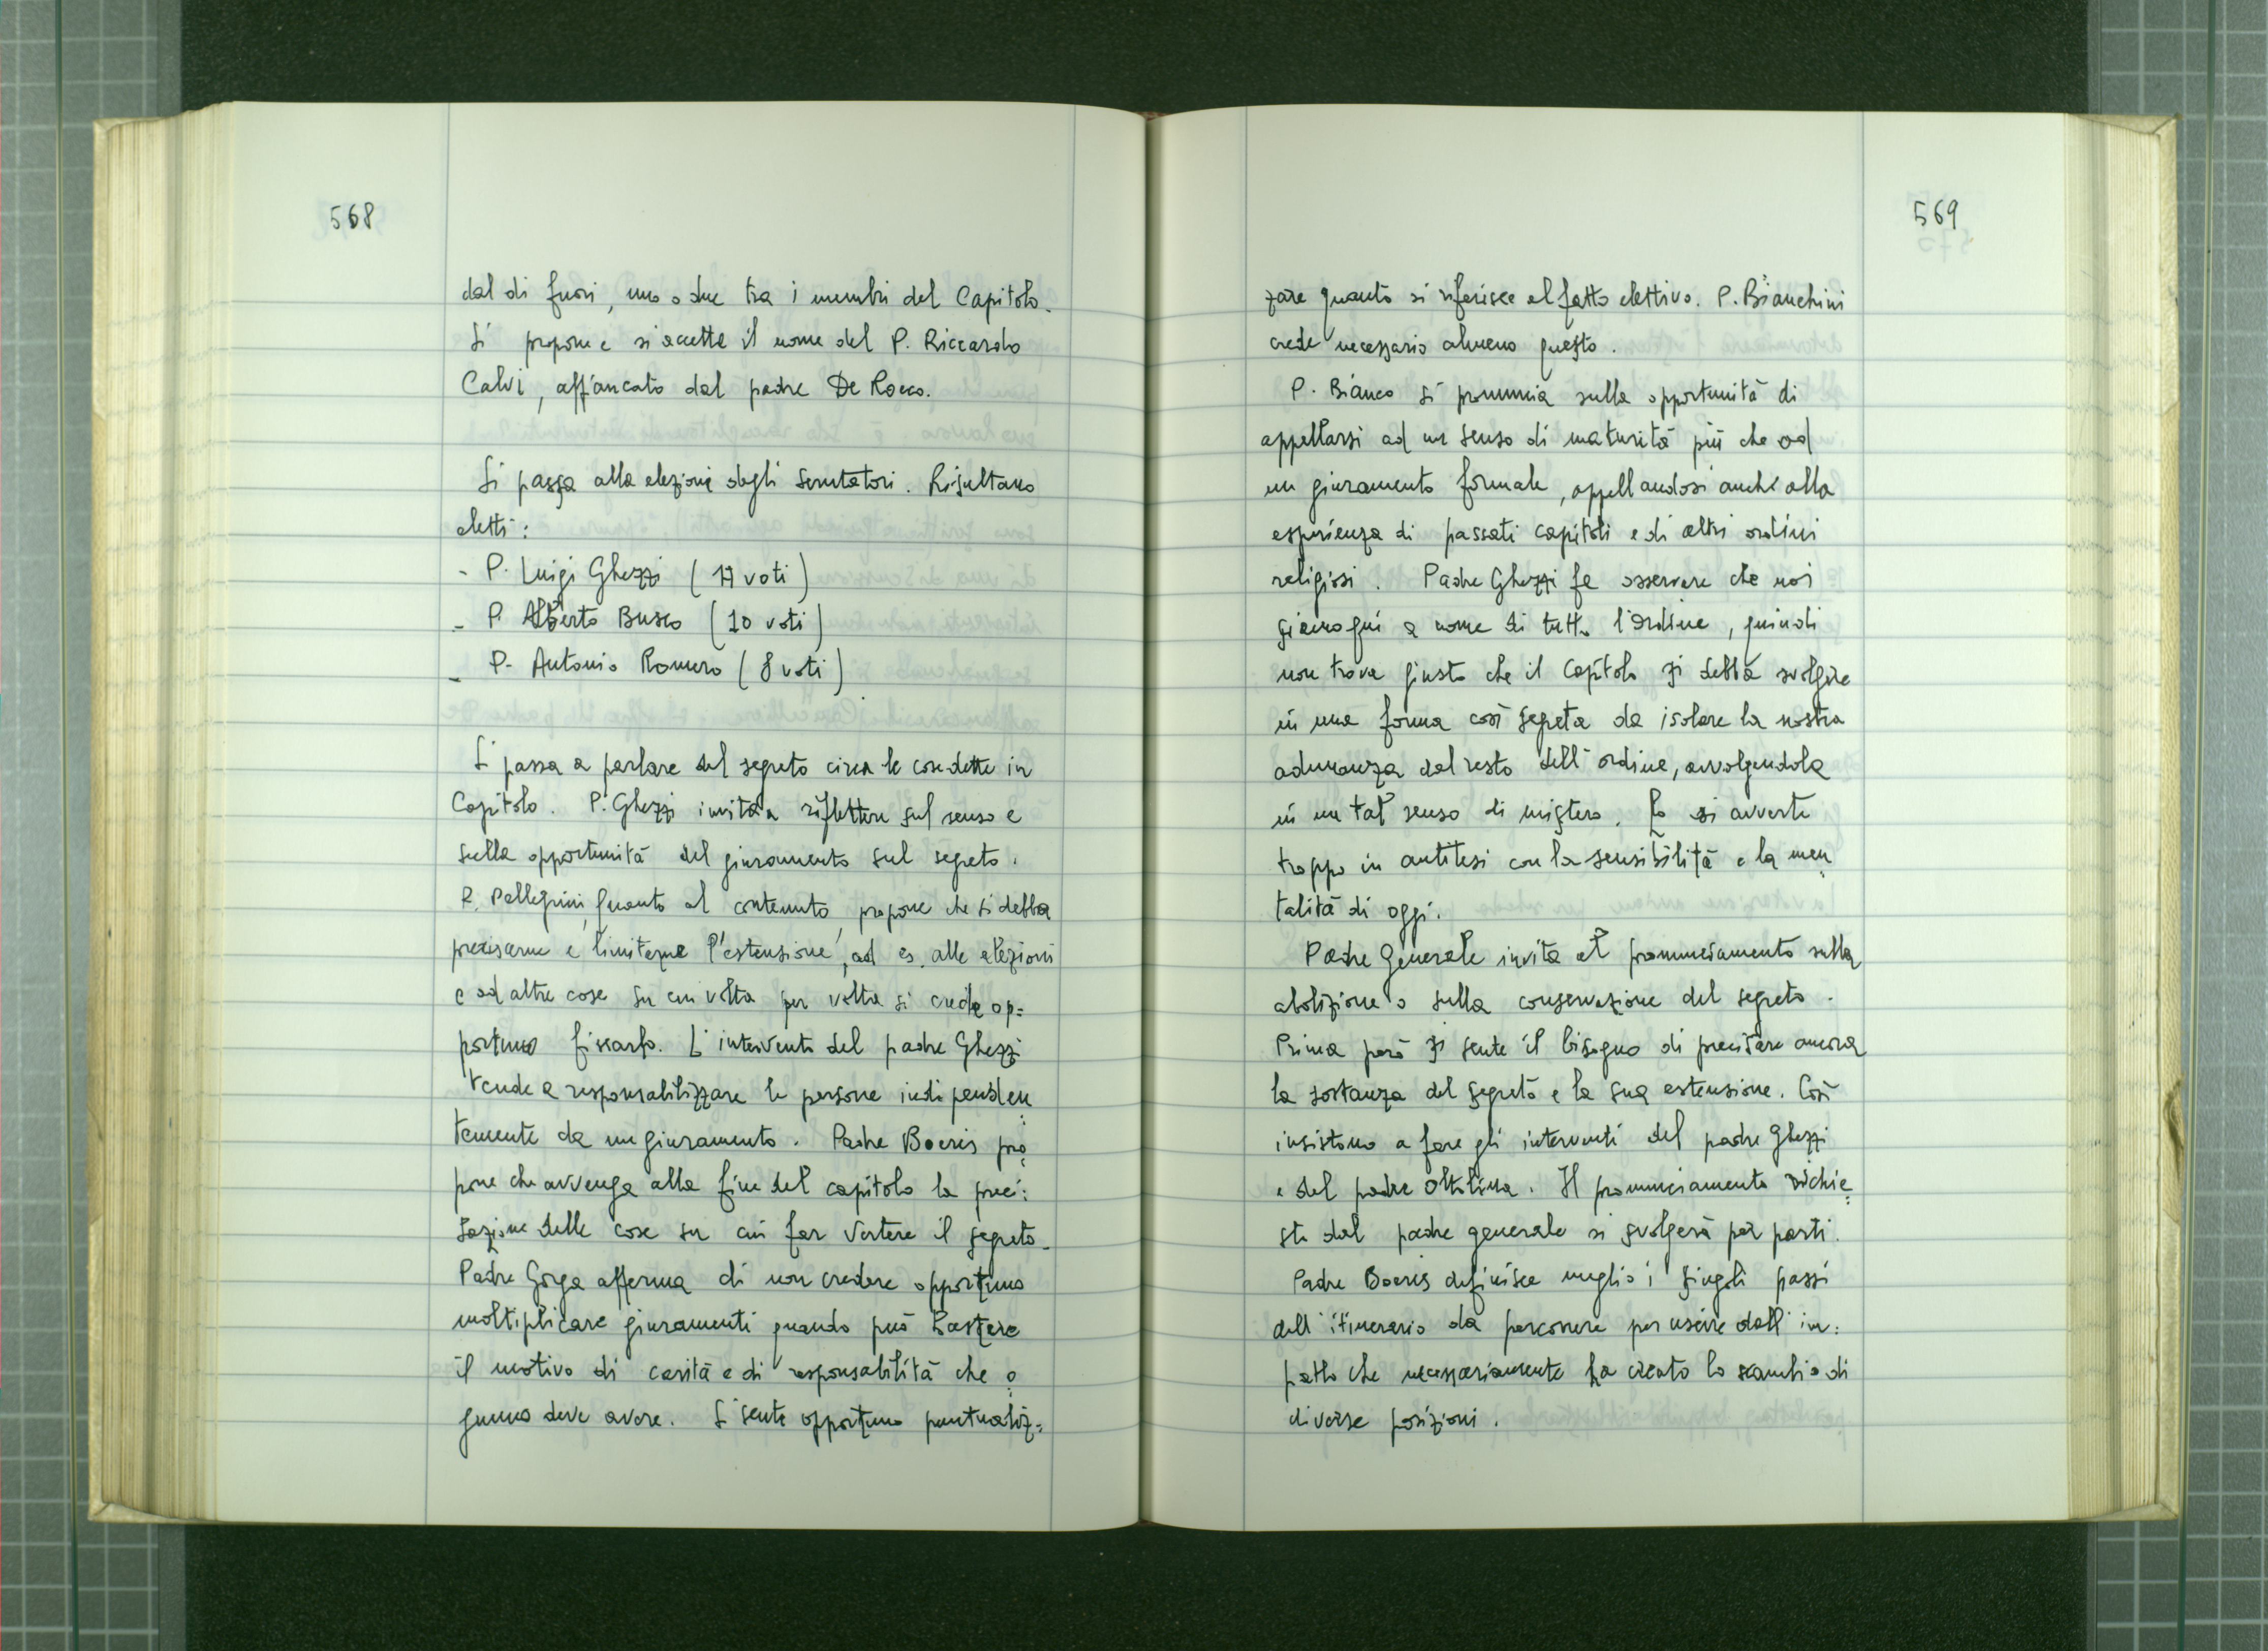 568
dal di fuori, uno o due tra i membri del Capitolo.
Si propone e si accetta il nome del P. Riccardo
Calvi, affiancato dal padre De Rocco.
Si passa alla elezione degli scrutatori. Risultano
eletti:
- P. Luigi Ghezzi (17 voti)
- P. Alberto Busco (10 voti)
- P. Antonio Romero (8 voti)
Si passa a parlare del segreto circa le cose dette in
Capitolo. P. Ghezzi invita a riflettere sul senso e
sulla opportunità del giuramento sul segreto.
P. Pellegrini, quanto al contenuto, propone che si debba
precisarne e limitarne l'estensione, ad es. alle elezioni
e ad altre cose su cui volta per volta si crede op=
portuno fissarlo. L'intervento del padre Ghezzi
tende a responsabilizzare le persone indipenden=
temente da un giuramento. Padre Boeris pro=
pone che avvenga alla fine del capitolo la preci=
sazione delle cose su cui far vertere il segreto.
Padre Gorga afferma di non credere opportuno
moltiplicare giuramenti quando può bastare
il motivo di carità e di responsabilità che o=
gnuno deve avere. Si sente opportuno puntualiz=
569
zare quanto si riferisce al fatto elettivo. P. Bianchini
crede necessario almeno questo.
P. Bianco si pronuncia sulla opportunità di
appellarsi ad un senso di maturità più che ad
un giuramento formale, appellandosi anche alla
esperienza di passati capitoli e di altri ordini
religiosi. Padre Ghezzi fa osservare che noi
siamo qui a nome di tutto l'ordine, quindi
non trova giusto che il Capitolo si debba svolgere
in una forma così segreta da isolare la nostra
adunanza dal resto dell'ordine, avvolgendola
in un tal senso di mistero. Lo si avverte
troppo in antitesi con la sensibilità e la men=
talità di oggi.
Padre Generale invita al pronunciamento sulla
abolizione o sulla conservazione del segreto.
Prima però si sente il bisogno di precisare ancora
la sostanza del segreto e la sua estensione. Così
insistono a fare gli interventi del padre Ghezzi
e del padre Oltolina. Il pronunciamento richie=
sto dal padre generale si svolgerà per parti.
Padre Boeris definisce meglio i singoli passi
dell'itinerario da percorrere per uscire dall'im=
patto che necessariamente ha creato lo scambio di
diverse posizioni.